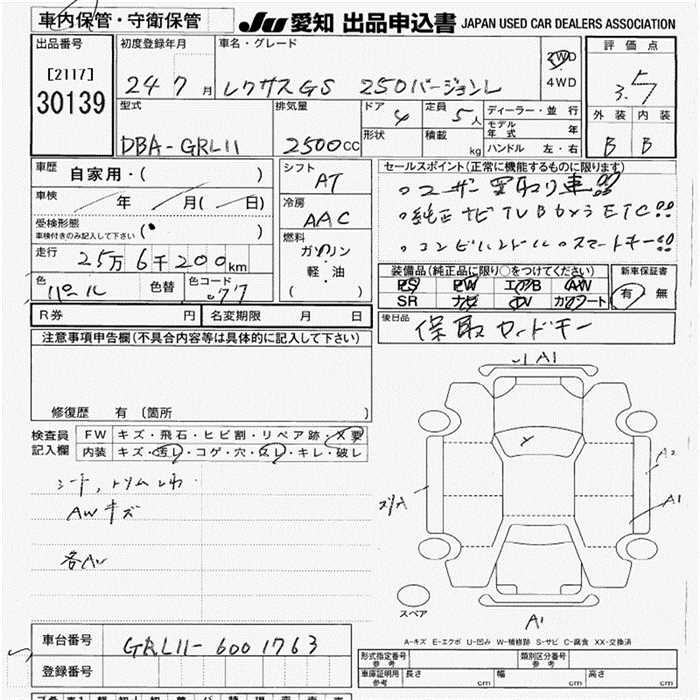 車内保管・守衛保管
JU 愛知 出品申込書 JAPAN USED CAR DEALERS ASSOCIATION
出品番号
[2117]
30139
初度登録年月
24年7月
車名・グレード
レクサスGS 250バージョンL
2WD
4WD
評価点
3.5
外装 内装
B B
型式
DBA-GRL11
排気量
2500cc
ドア 4
定員 5人
形状
積載 kg
ディーラー・並行
モデル年式 年
ハンドル 左・右
車歴
自家用・( )
車検
年 月( 日)
受検形態
車検付きのみ記入して下さい
走行
25万6千200km
色
パール
色替
色コード
077
シフト
AT
冷房
AAC
燃料
ガソリン
軽・油
( )
セールスポイント(正常に機能するものに限ります)
。ユーザー買取り車!!
。純正ナビTVBカメラETC!!
。コンビハンドル。スマートキー!!
装備品(純正品に限り○をつけてください)
PS PW エアB AW
SR ナビ TV カワシート
新車保証書
有 無
R券 円
名変期限 月 日
後日品
保取カードキー
注意事項申告欄(不具合内容等は具体的に記入して下さい)
修復歴 有〔箇所 〕
検査員記入欄
FW キズ・飛石・ヒビ割・リペア跡・X要
内装 キズ・汚レ・コゲ・穴・スレ・キレ・破レ
シート,トリムシワ
AWキズ
A1
A2
A1
A1
スペア
A-キズ E-エクボ U-凹み W-補修跡 S-サビ C-腐食 XX-交換済
車台番号
GRL11-6001763
登録番号
形式指定番号
参考
類別区分番号
参考
車庫証明用
参考
長さ cm
幅 cm
高さ cm